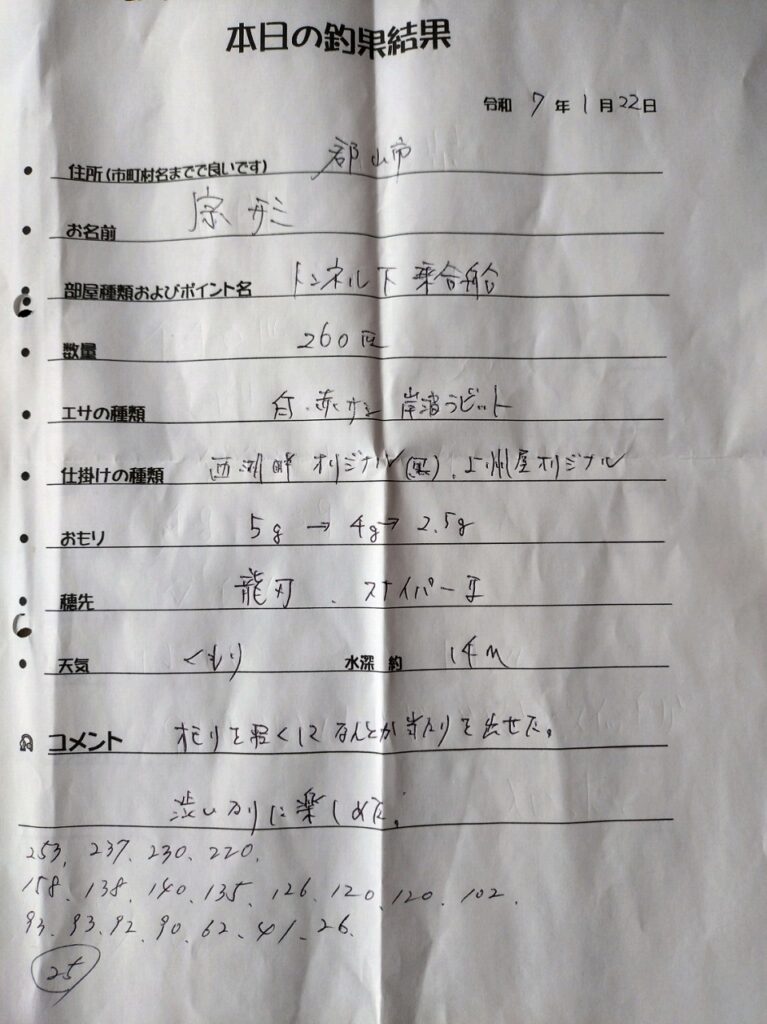 本日の釣果結果
令和 7 年 1 月 22 日
住所(市町村名までで良いです) 郡山市
お名前 宗形
部屋種類およびポイント名 トンネル下 乗合船
数量 260匹
エサの種類 白・赤サシ 岸渚ラビット
仕掛けの種類 西湖畔オリジナル(黒)、上州屋オリジナル
おもり 5g → 4g → 2.5g
穂先 龍刃、スナイパー
天気 くもり 水深 約 14m
コメント オモリを軽くしてなんとか当たりを出せた。
渋いなりに楽しめた。
253、237、230、220、
158、138、140、135、126、120、120、102、
93、93、92、90、62、41、26、
25